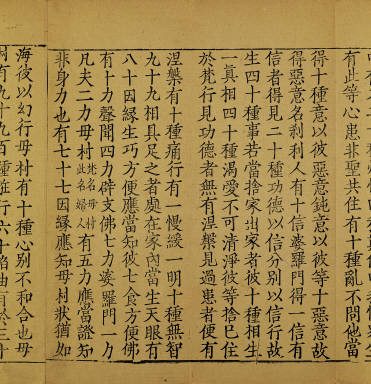 有此等心患非聖共住有十種亂不問他當
得十種意以彼惡意鈍意以彼等十惡意故
得惡意名利利人有十信婆羅門得一信有
信者得見二十種功德以信分別以信行故
生四十種事若當捨家出家者彼十種相生
一真相四十種渴愛不可清淨彼等捨已住
於梵行見功德者無有涅槃見過患者便有
涅槃有十種痛行有一慢緩一明十種無智
九十九相具足之者處在家內當生天眼有
八十因緣生巧方便應當知彼七食方便佛
有十力聲聞四力辟支佛七力婆羅門一力
凡夫二力母村梵名母村此名婦人有五力應當證知
非身力也有七十七因緣應知母村狀猶如
海彼以幻行母村有十種心別不和合也母
有九十九百種誑行六十諂曲有於三千